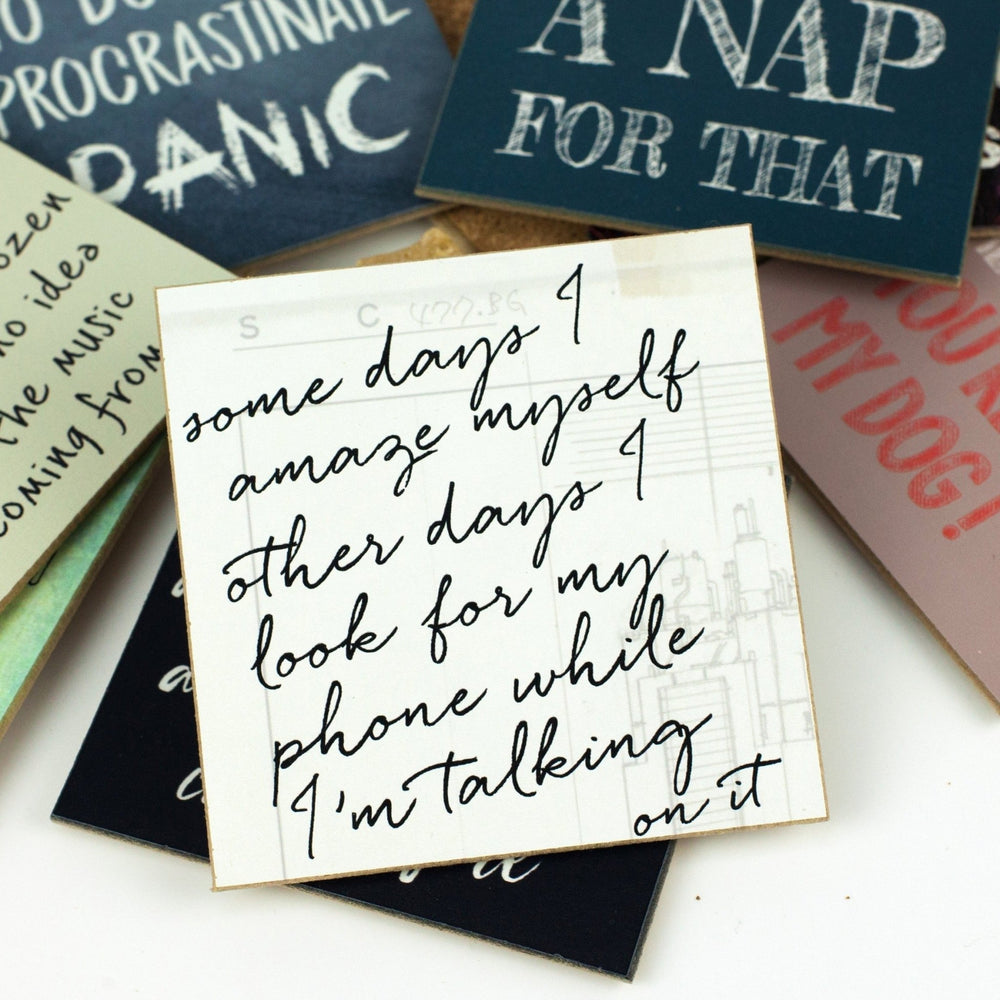 TO DO
PROCRASTINATE
PANIC
A NAP
FOR THAT
no idea
the music
coming from
S C 477.BG
some days I
amaze myself
other days I
look for my
phone while
I'm talking
on it
MY DOG!